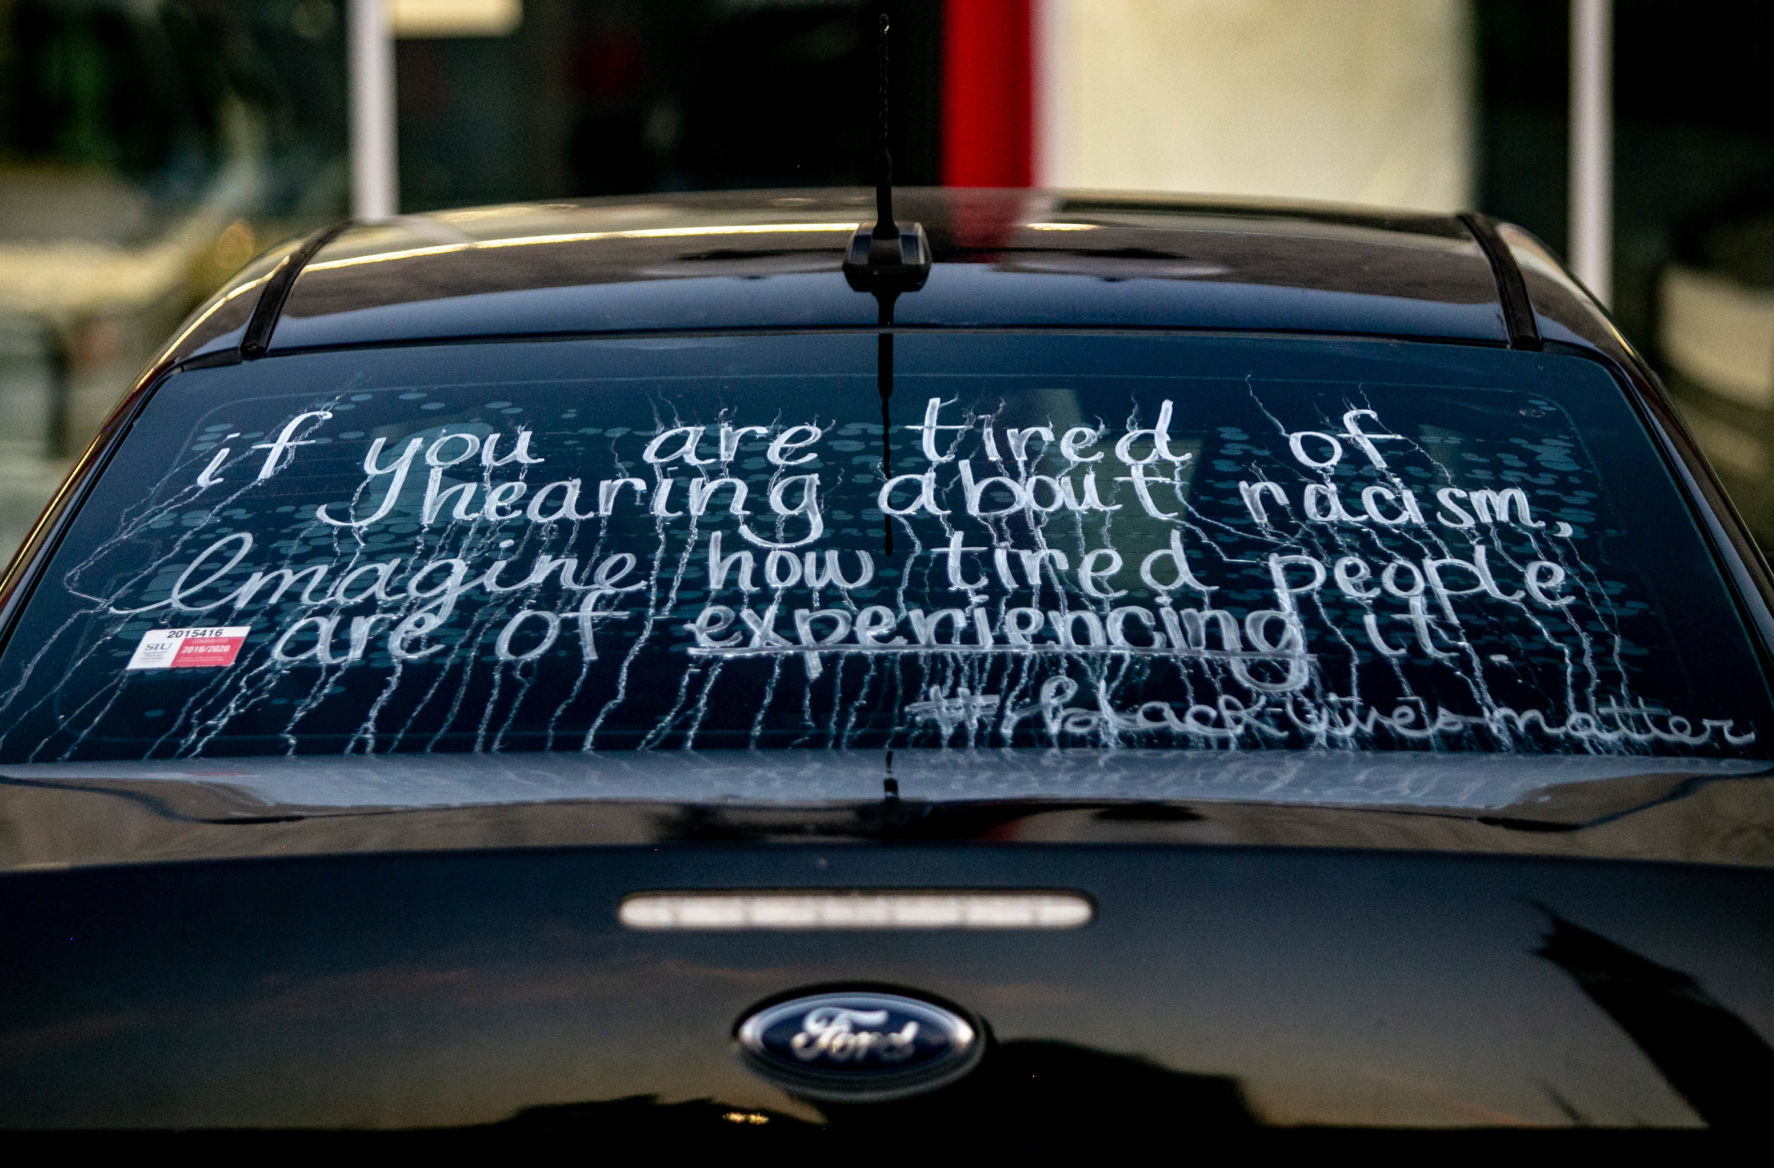 if you are tired of
hearing about racism,
Imagine how tired people
are of experiencing it.
#blacklivesmatter
2015416
SIU
COMMUTER
2019/2020
Ford